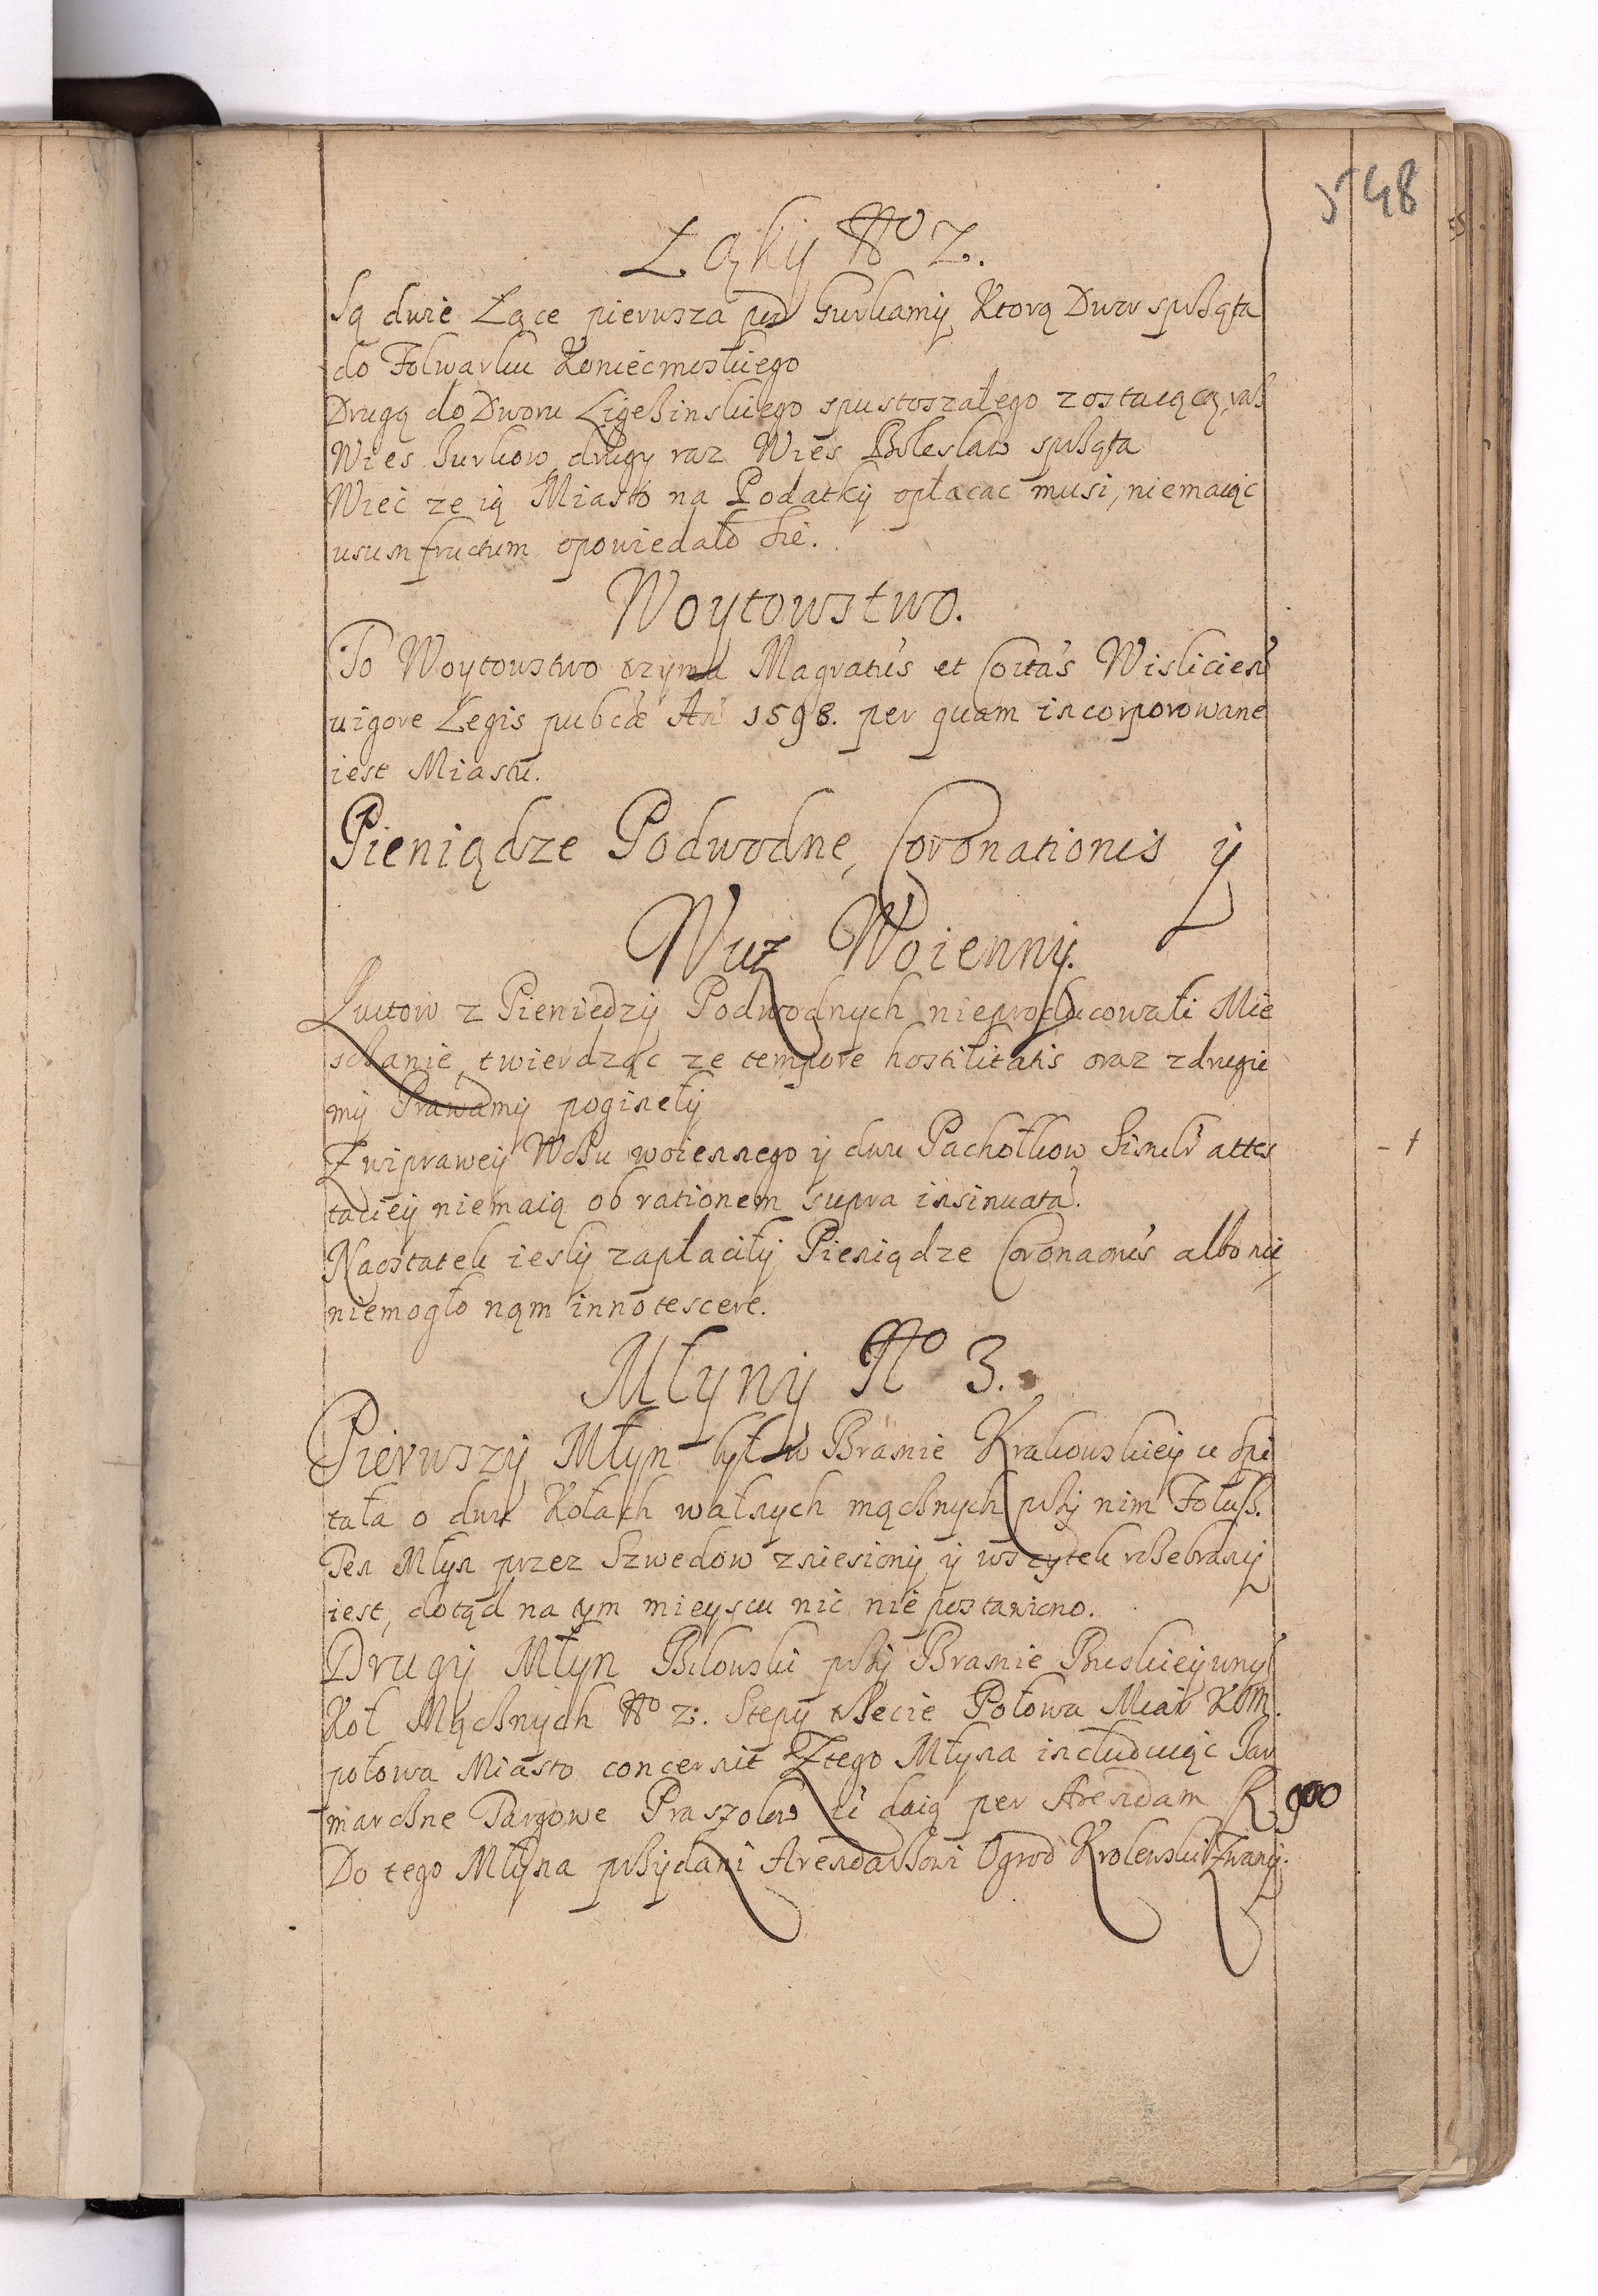 548
Łąky No 2.
Są dwie Łące pierwsza pod Gurkamy, Ktorą Dwor sprząta
do Folwarku Koniecmoskiego
Drugą do Dworu Ligęzinskiego spustoszałego zostaiącą, raz
Wies Jurkow, drugy raz Wies Bolesław sprząta
Wiec ze ią Miasto na Podatky opłacac musi, niemaiąc
usumfructum opowiedało sie.
Woytowstwo.
To Woytowstwo trzyma Magratus et Coitas Wisliciens
uigore Legis pubcæ An 1598. per quam incorporowane
iest Miastu.
Pieniądze Podwodne, Coronationis y
Wuz Woienny.
Kwitow z Pieniedzy Podwodnych nieproducowali Mie
sczanie, twierdząc ze tempore hostilitatis oraz z drugie
my Prawamy poginęły
Z wiprawey Wozu woiennego y dwu Pachołkow Simili attes
taciey niemaią ob rationem supra insinuata.
Naostatek iesly zapłaciły Pieniądze Coronaonis albo nie
niemogło nąm innotescere.
Młyny No 3.
Pierwszy Młyn był w Bramie Krakowskiey u Szpi
tala o dwu Kołach walnych mącznych przy nim Folusz.
Ten Młyn przez Szwedow zniesiony y wszytek rozebrany
iest, dotąd na tym mieyscu nic nie postawiono.
Drugy Młyn przy Bramie Buskiey
Koł Mącznych No 2. Stępy trzecie Połowa Miar KJM.
połowa Miasto concernit Z tego Młyna includuiąc Jar
marczne Targowe daią per Arendam R 900
Do tego Młyna przydany Arendarzowi Ogrod Krolewski Zwany.